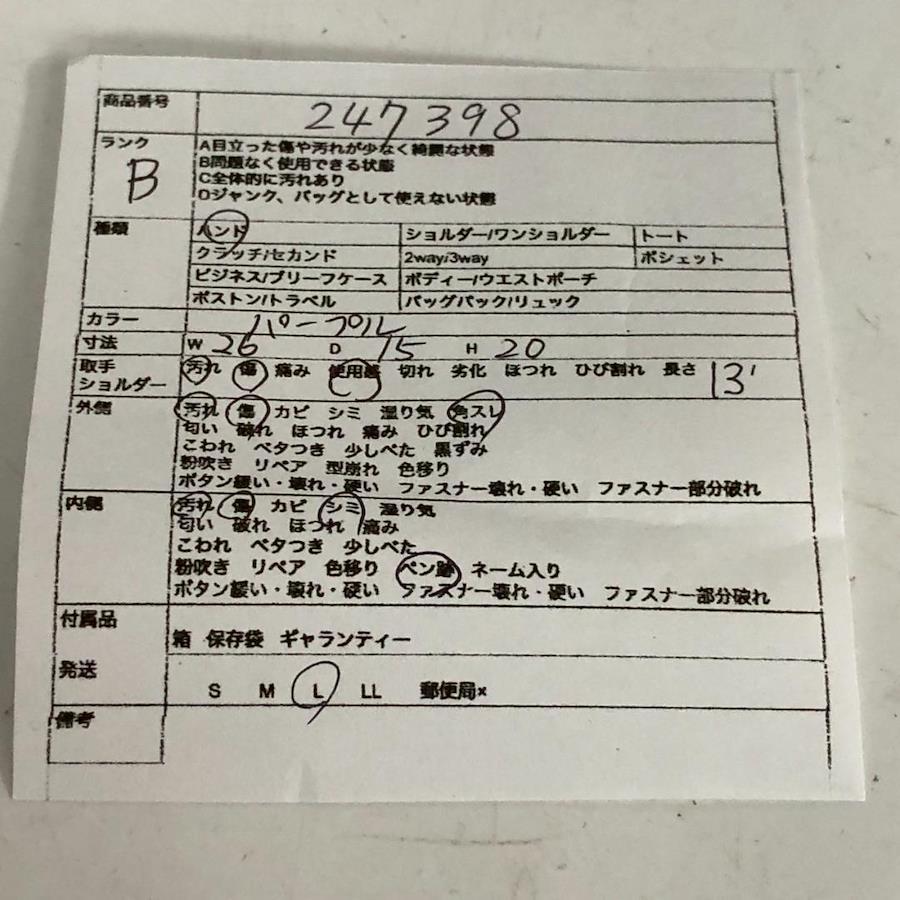 商品番号 247398
ランク B
A目立った傷や汚れが少なく綺麗な状態
B問題なく使用できる状態
C全体的に汚れあり
Dジャンク、バッグとして使えない状態
種類 ハンド ショルダー/ワンショルダー トート
クラッチ/セカンド 2way/3way ポシェット
ビジネス/ブリーフケース ボディー/ウエストポーチ
ボストン/トラベル バッグパック/リュック
カラー パープル
寸法 W 26 D 15 H 20
取手 汚れ 傷 痛み 使用感 切れ 劣化 ほつれ ひび割れ 長さ 13
ショルダー
外側 汚れ 傷 カビ シミ 湿り気 角スレ
匂い 破れ ほつれ 痛み ひび割れ
こわれ ベタつき 少しべた 黒ずみ
粉吹き リペア 型崩れ 色移り
ボタン緩い・壊れ・硬い ファスナー壊れ・硬い ファスナー部分破れ
内側 汚れ 傷 カビ シミ 湿り気
匂い 破れ ほつれ 痛み
こわれ ベタつき 少しべた
粉吹き リペア 色移り ペン跡 ネーム入り
ボタン緩い・壊れ・硬い ファスナー壊れ・硬い ファスナー部分破れ
付属品 箱 保存袋 ギャランティー
発送 S M L LL 郵便局×
備考